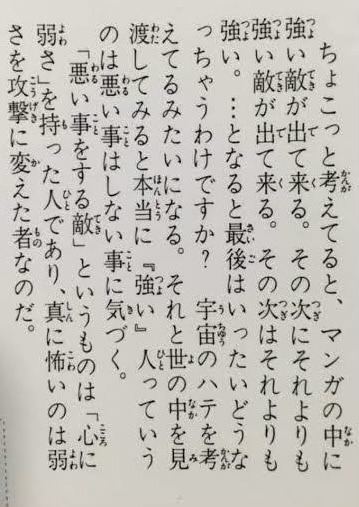 ちょこっと考えてると、マンガの中に
強い敵が出て来る。その次にそれよりも
強い敵が出て来る。その次はそれよりも
強い。…となると最後はいったいどうな
っちゃうわけですか？　宇宙のハテを考
えてるみたいになる。それと世の中を見
渡してみると本当に『強い』人っていう
のは悪い事はしない事に気づく。
「悪い事をする敵」というものは「心に
弱さ」を持った人であり、真に怖いのは弱
さを攻撃に変えた者なのだ。